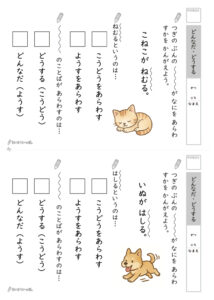 どんなだ・どうする
なまえ
つぎの ぶんの 〰〰が なにを あらわ
すかを かんがえよう。
こねこが ねむる。
ねむるというのは…
こうどうをあらわす
ようすをあらわす
〰〰のことばが あらわすのは…
どうする(こうどう)
どんなだ(ようす)
どんなだ・どうする
なまえ
つぎの ぶんの 〰〰が なにを あらわ
すかを かんがえよう。
いぬが はしる。
はしるというのは…
こうどうをあらわす
ようすをあらわす
〰〰のことばが あらわすのは…
どうする(こうどう)
どんなだ(ようす)